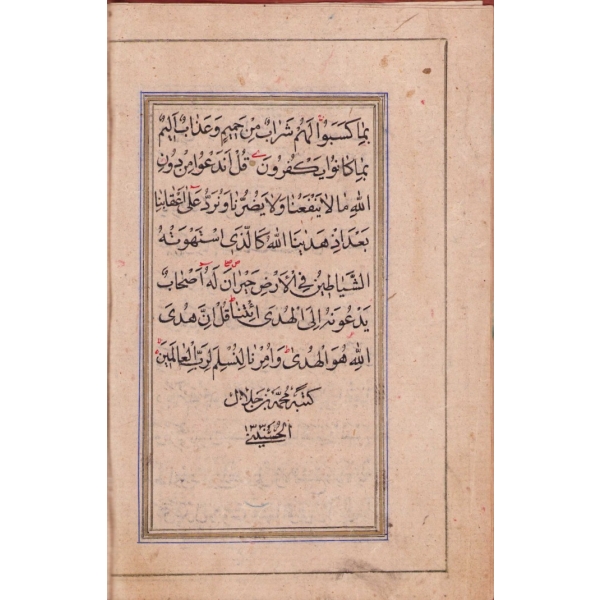 بِمَا كَسَبُوا لَهُمْ شَرَابٌ مِنْ حَمِيمٍ وَعَذَابٌ أَلِيمٌ
بِمَا كَانُوا يَكْفُرُونَ قُلْ أَنَدْعُوا مِنْ دُونِ
اللهِ مَا لَا يَنْفَعُنَا وَلَا يَضُرُّنَا وَنُرَدُّ عَلَى أَعْقَابِنَا
بَعْدَ إِذْ هَدٰينَا اللهُ كَالَّذِي اسْتَهْوَتْهُ
الشَّيَاطِينُ فِي الْأَرْضِ حَيْرَانَ لَهُ أَصْحَابٌ
يَدْعُونَهُ إِلَى الْهُدَى ائْتِنَا قُلْ إِنَّ هُدَى
اللهِ هُوَ الْهُدَى وَأُمِرْنَا لِنُسْلِمَ لِرَبِّ الْعَالَمِينَ
كتبه محمد بن جلال
الحسيني